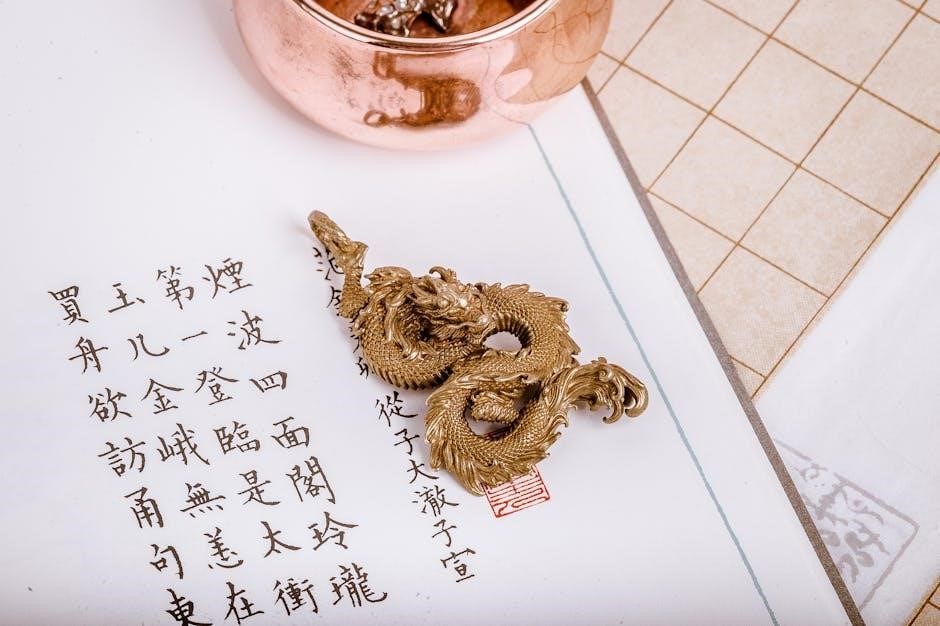 從子大澈子宣
煙波四面閣玲瓏
第一登臨是太衝
玉几金峨無恙在
買舟欲訪甬句東